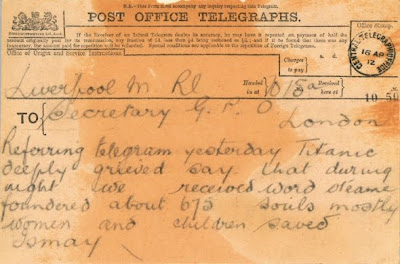 N.B.—This Form must accompany any inquiry respecting this Telegram.
POST OFFICE TELEGRAPHS.
If the Receiver of an Inland Telegram doubts its accuracy, he may have it repeated on payment of half the
amount originally paid for its transmission, any fraction of 1d. less than ½d. being reckoned as ½d.; and if it be found that there was any
inaccuracy, the amount paid for repetition will be refunded. Special conditions are applicable to the repetition of Foreign Telegrams.
Office of Origin and Service Instructions
Charges to pay
Office Stamp.
CENTRAL TELEGRAPH OFFICE
16 AP
12
Liverpool M.
Handed in at
10 15a
Received here at
10 50
TO
Secretary G. P. O
London
Referring telegram yesterday Titanic
deeply grieved say that during
night we received word steamer
foundered about 675 souls mostly
women and children saved
Ismay